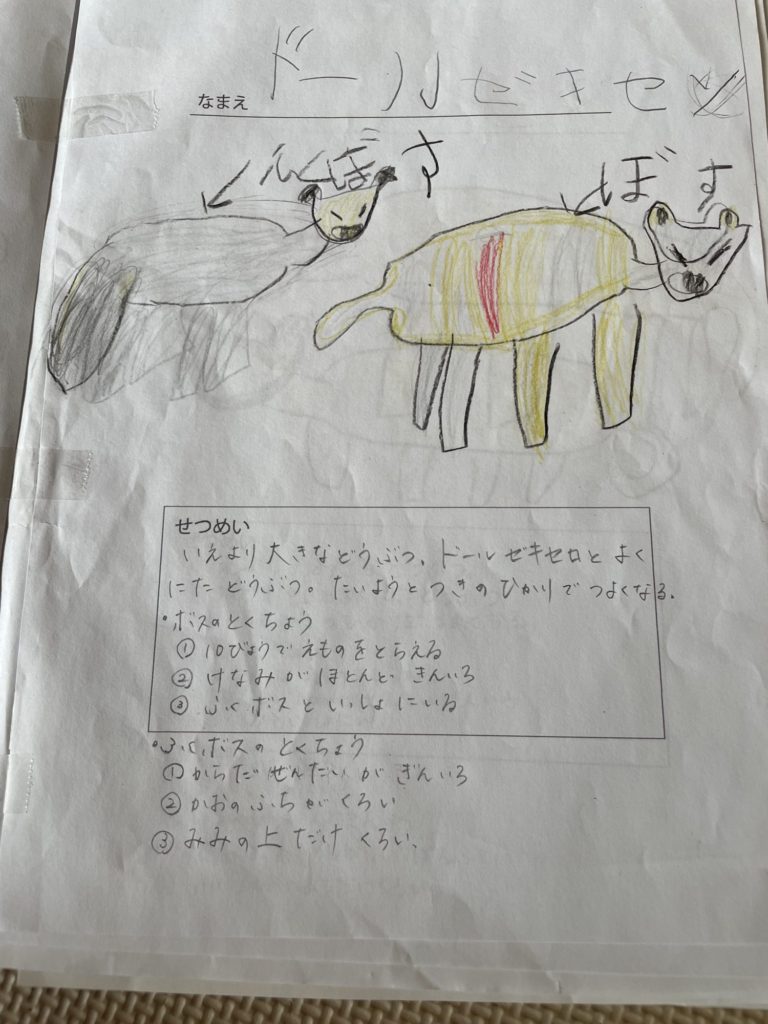 なまえ ドール ゼキセ
ふくぼす
ぼす
せつめい
いえより大きなどうぶつ。ドールゼキセロとよく
にたどうぶつ。たいようとつきのひかりでつよくなる。
・ボスのとくちょう
①10びょうでえものをとらえる
②けなみがほとんどきんいろ
③ふくボスといっしょにいる
・ふくボスのとくちょう
①からだぜんたいがぎんいろ
②かおのふちがくろい
③みみの上だけくろい、